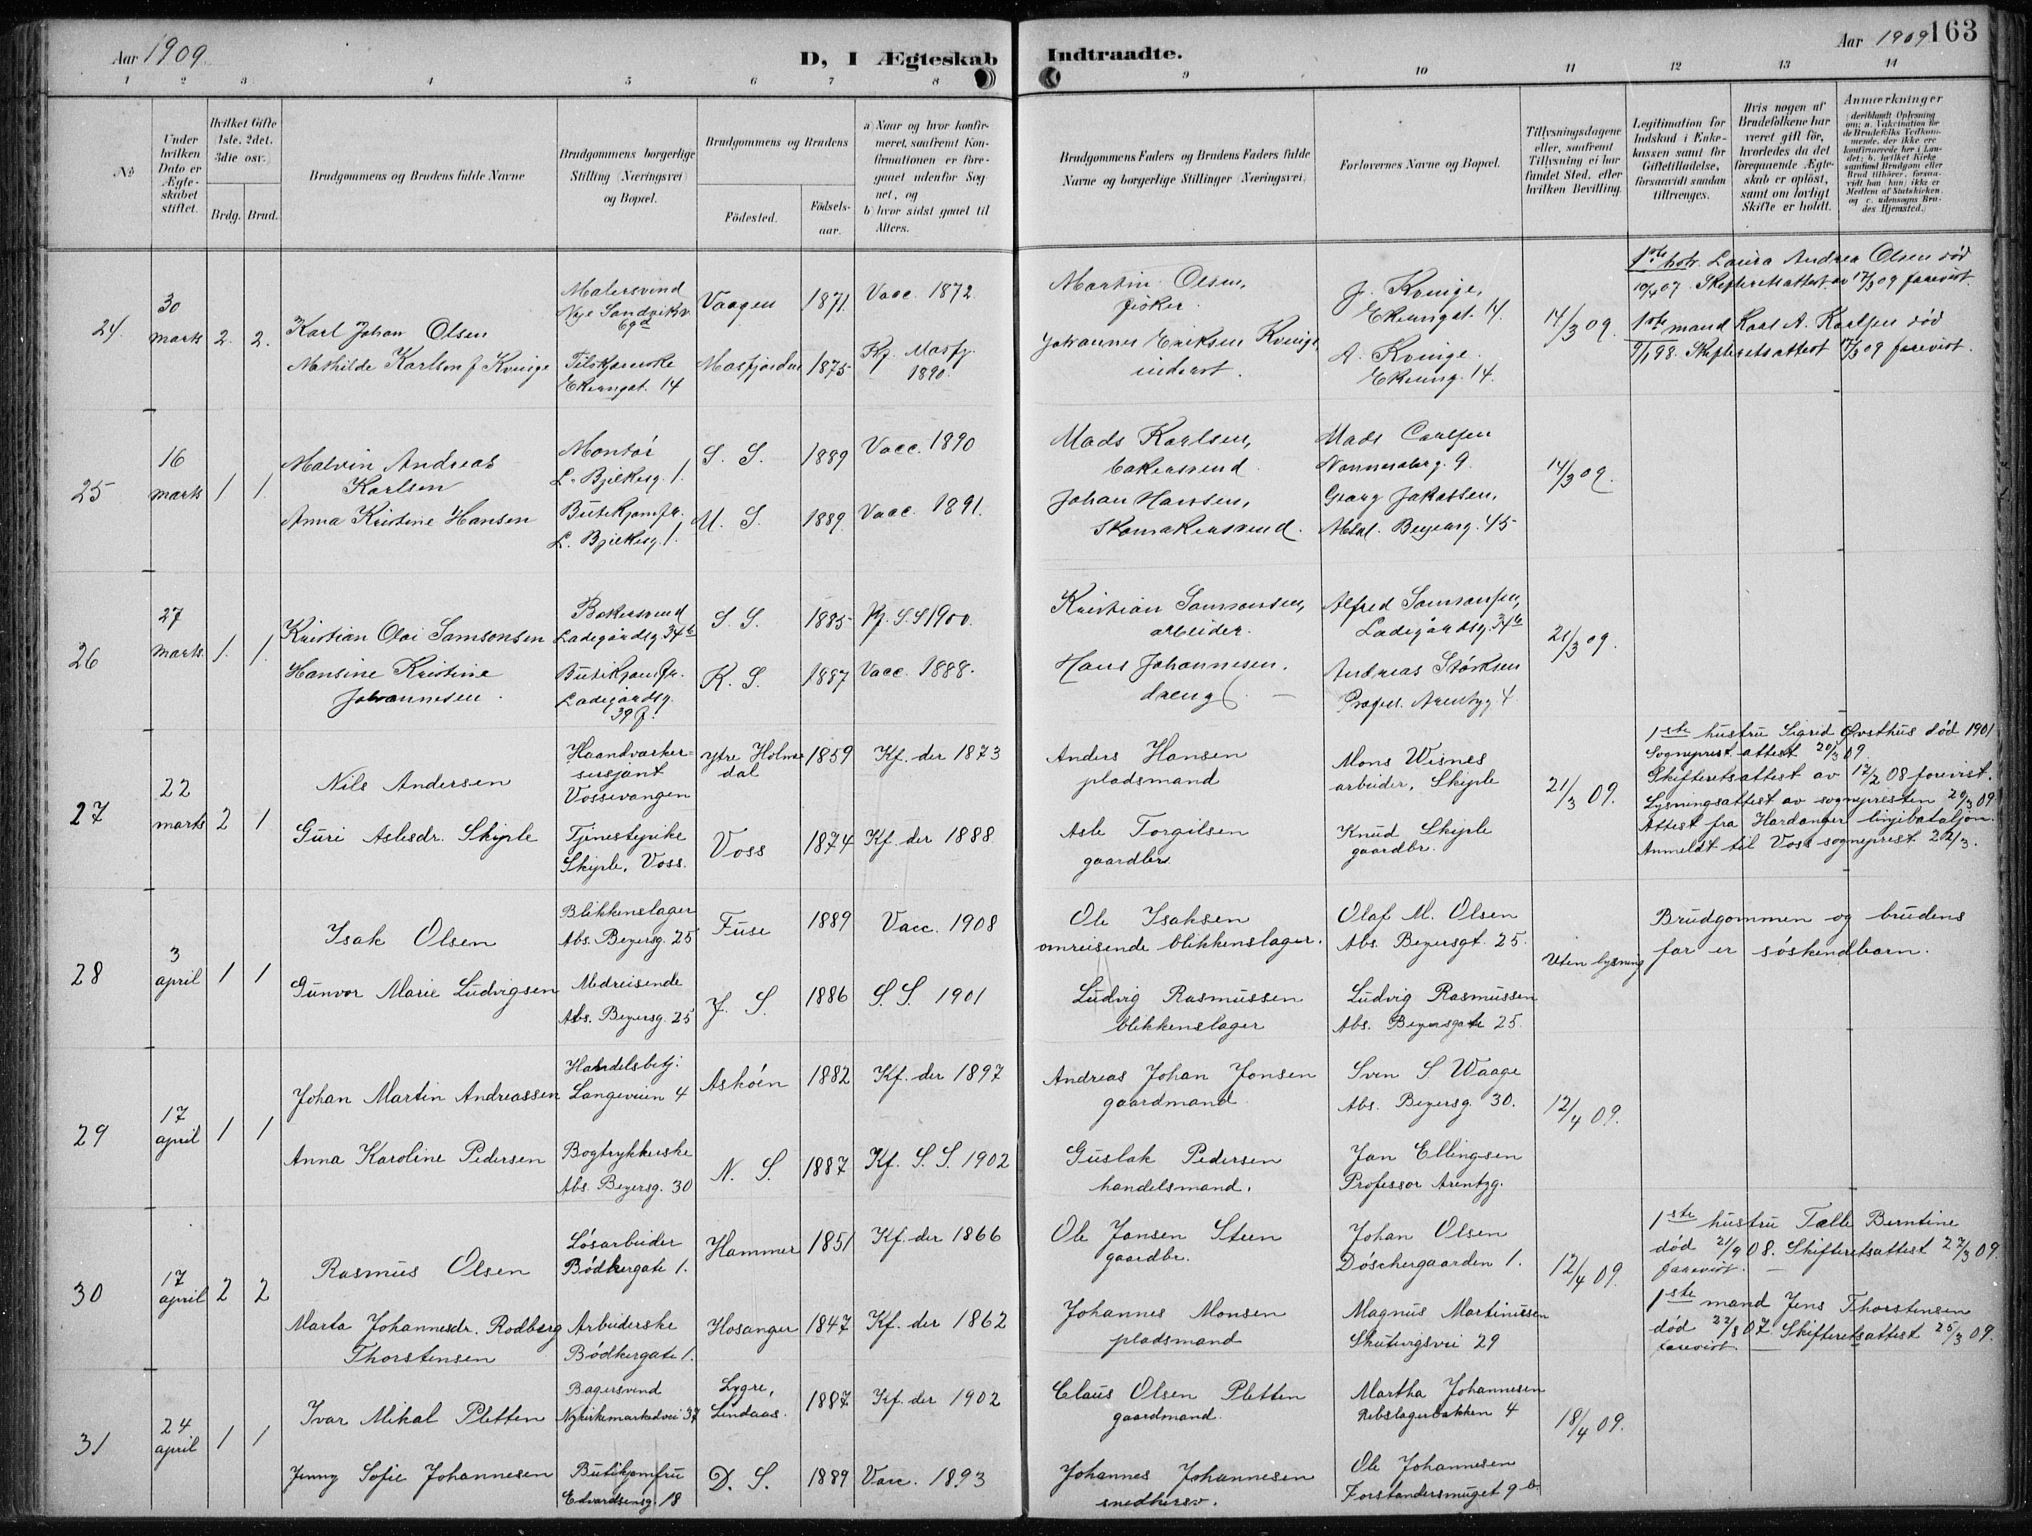 Aar 1909.
D, I Ægteskab Indtraadte.
Aar 1909 163
1 2 3 4 5 6 7 8 9 10 11 12 13 14
No
Under hvilken Dato er Ægteskabet stiftet.
Hvilket Gifte 1ste, 2det, 3die osv.
Brdg. Brud.
Brudgommens og Brudens fulde Navne
Brudgommens borgerlige Stilling (Næringsvei) og Bopæl.
Brudgommens og Brudens
Födested.
Födselsaar.
a) Naar og hvor konfirmeret, samt Konfirmationen er foregaaet udenfor Sognet, og
b) hvor sidst gaaet til Alters.
Brudgommens Faders og Brudens Faders fulde Navne og borgerlige Stillinger (Næringsvei)
Forlovernes Navne og Bopæl.
Tillysningsdagene eller, saafremt Tillysning ei har fundet Sted, efter hvilken Bevilling.
Legitimation for Indskud i Enkekassen samt for Giftetilladelse, forsaavidt saadan tiltrænges.
Hvis nogen af Brudefolkene har været gift för, hvorledes da det foregaaende Ægteskab er oplöst, samt om lovligt Skifte er holdt.
Anmærkninger
24. 30 marts 2. 2.
Karl Johan Olsen
Malersvend Nye Sandviksv. 69d
Vaagen 1871. Vacc. 1872.
Martin Olsen, fisker.
J. Kvinge, Ekrengat. 14
14/3 09.
1ste hstr. Laura Andrea Olsen død
10/4 07. Skifteretsattest av 17/3 09 forevist.
Mathilde Karlsen f. Kvinge
Ekrengat. 14
Masfjorden 1875 Kf. Masfj. 1890.
Johannes Eriksen Kvinge inderst.
A. Kvinge. Ekreng. 14.
1ste mand Lars A. Karlsen død
9/1 98. Skifteretsattest 17/3 09 forevist.
25 16 marts 1 1.
Malvin Andreas Karlsen
Montør L. Bjelkesg. 1.
S. S. 1889 Vacc. 1890
Mads Karlsen, bakersvend.
Mads Carlsen
14/3 09.
Anna Kristine Hansen
Butikjomfr. L. Bjelkesg. 1.
M. S. 1889. Vacc. 1891.
Johan Hansen, Skomakersvend.
Georg Jakobsen, Absal. Beyersg. 45
26 27 marts. 1. 1.
Kristian Olai Samsonsen
Bakersvend Ladegårdsg. 34b
S. S. 1885 Kf. S. S 1900.
Kristian Samsonsen, arbeider.
Alfred Samsonsen, Ladegårdsg. 34b
21/3 09.
Hansine Kristine Johannesen.
Butikjomfr. Ladegårdsg. 39
K. S. 1887 Vacc. 1888.
Hans Johannesen. dreng
Andreas Størksen Profes. Arentzg 4
27 22 marts 2 1
Nils Andersen
Haandverkersersjant Vossevangen
Ytre Holmedal 1859 Kf. der 1873
Anders Hansen pladsmand
Mons Wisnes arbeider, Skjple
21/3 09.
1ste hustru Sigrid Øvsthus død 1901
Sogneprest. attest 20/3 09.
Skifteretsattest av 17/2 08 forevist.
Lysningsattest av sognepresten 20/3 09
Attest fra Hardanger linjebataljon.
Anmeldt til Voss sogneprest 22/3.
Guri Aslesdr. Skjple
Tjenestepike Skjple, Voss.
Voss 1874 Kf. der 1888
Asle Torgilsen gaardbr.
Knud Skjple gaardbr.
28 3 april 1 1
Isak Olsen
Blikkenslager Abs. Beyersg. 25
Fuse 1889 Vacc. 1908
Ole Isaksen omreisende blikkenslager.
Olaf M. Olsen Abs. Beyersgt. 25.
Uten lysning
Brudgommen og brudens
far er søskendbarn.
Gunvor Marie Ludvigsen
Medreisende Abs. Beyersg. 25
J. S. 1886 S. S. 1901
Ludvig Rasmussen blikkenslager
Ludvig Rasmussen Abs. Beyersgate 25.
29 17 april 1 1
Johan Martin Andreassen
Handelsbetj. Langeveien 4
Askøen 1882 Kf. der 1897
Andreas Johan Jonsen gaardmand.
Sven S Waage Abs. Beyersg. 30.
12/4 09.
Anna Karoline Pedersen
Bogtrykkerske Abs. Beyersg. 30
N. S. 1887 Kf. S. S. 1902
Guslak Pedersen handelsmand.
Jan Ellingsen Professor Arentzg.
30 17 april 2 2
Rasmus Olsen
Løsarbeider Bødkergate 1.
Hammer 1851 Kf. der 1866
Ole Jansen Steen gaardbr.
Johan Olsen Døschergaarden 1.
12/4 09.
1ste hustru Talle Berntine
død 21/9 08. Skifteretsattest 27/3 09.
forevist.
Marta Johannesdr. Rodberg Thorstensen
Arbeiderske Bødkergate 1.
Hosanger 1847 Kf. der 1862
Johannes Monsen pladsmand
Magnus Martinusen Skutevigsvei 29
1ste mand Jens Thorstensen
død 22/8 07. Skifteretsattest 25/3 09.
forevist.
31 24 april 1 1
Ivar Mikal Pletten
Bagersvend Nykirkemarkedvei 37
Lygre, Lindaas. 1887 Kf. der 1902
Claus Olsen Pletten gaardmand.
Martha Johannesen Rebslagerbakken 4
18/4 09.
Jenny Sofie Johannesen
Butikjomfru Edvardsensg. 18
D. S. 1889 Vacc. 1893
Johannes Johannesen snedkersv.
Ole Johannesen Forstandersmuget 9 b.